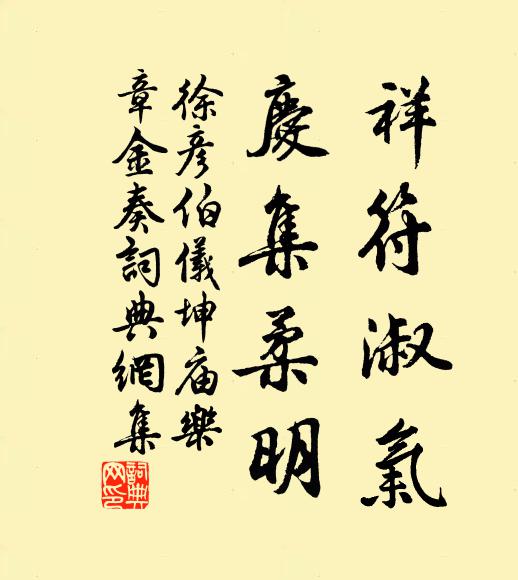 祥符淑氣
慶集柔明
徐彥伯儀坤庙樂
章金奏詞典網集
詞典
网印